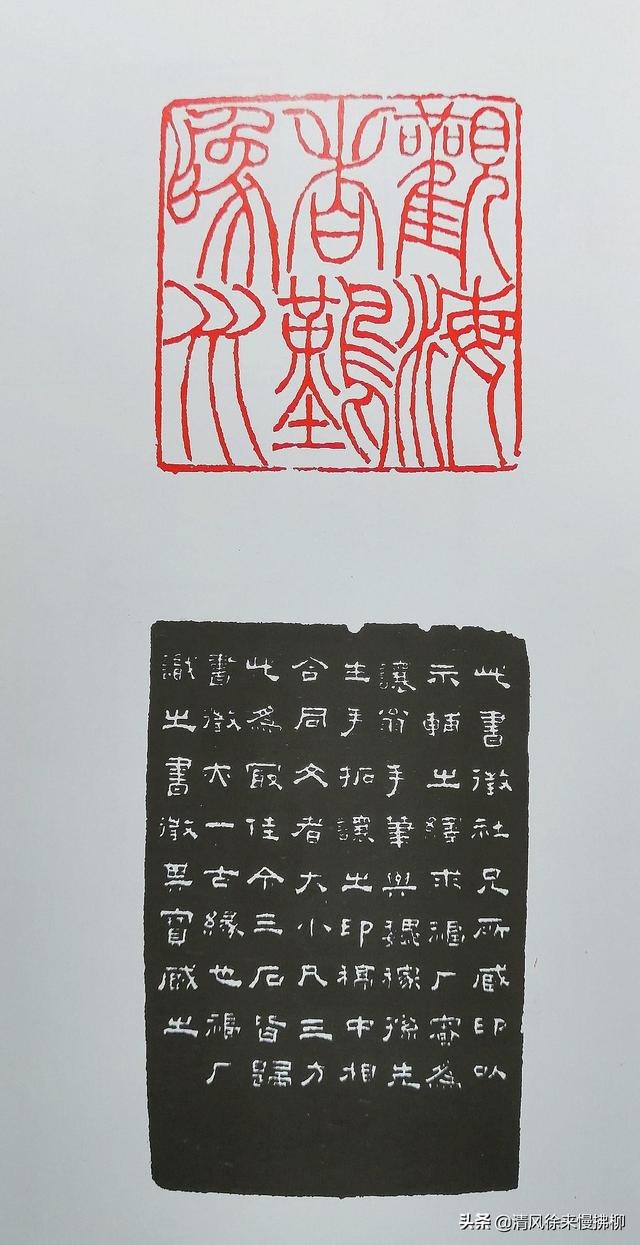 觀海
者難
為水
此書徵社兄所藏印以
示輔之求福厂審為
讓翁手筆與魏稼孫先
生手拓讓之印稿中相
合同文者大小凡三方
此為最佳今三石皆歸
書徵亦一古緣也福厂
識之書徵其寶藏之
头条 @清风徐来慢拂柳